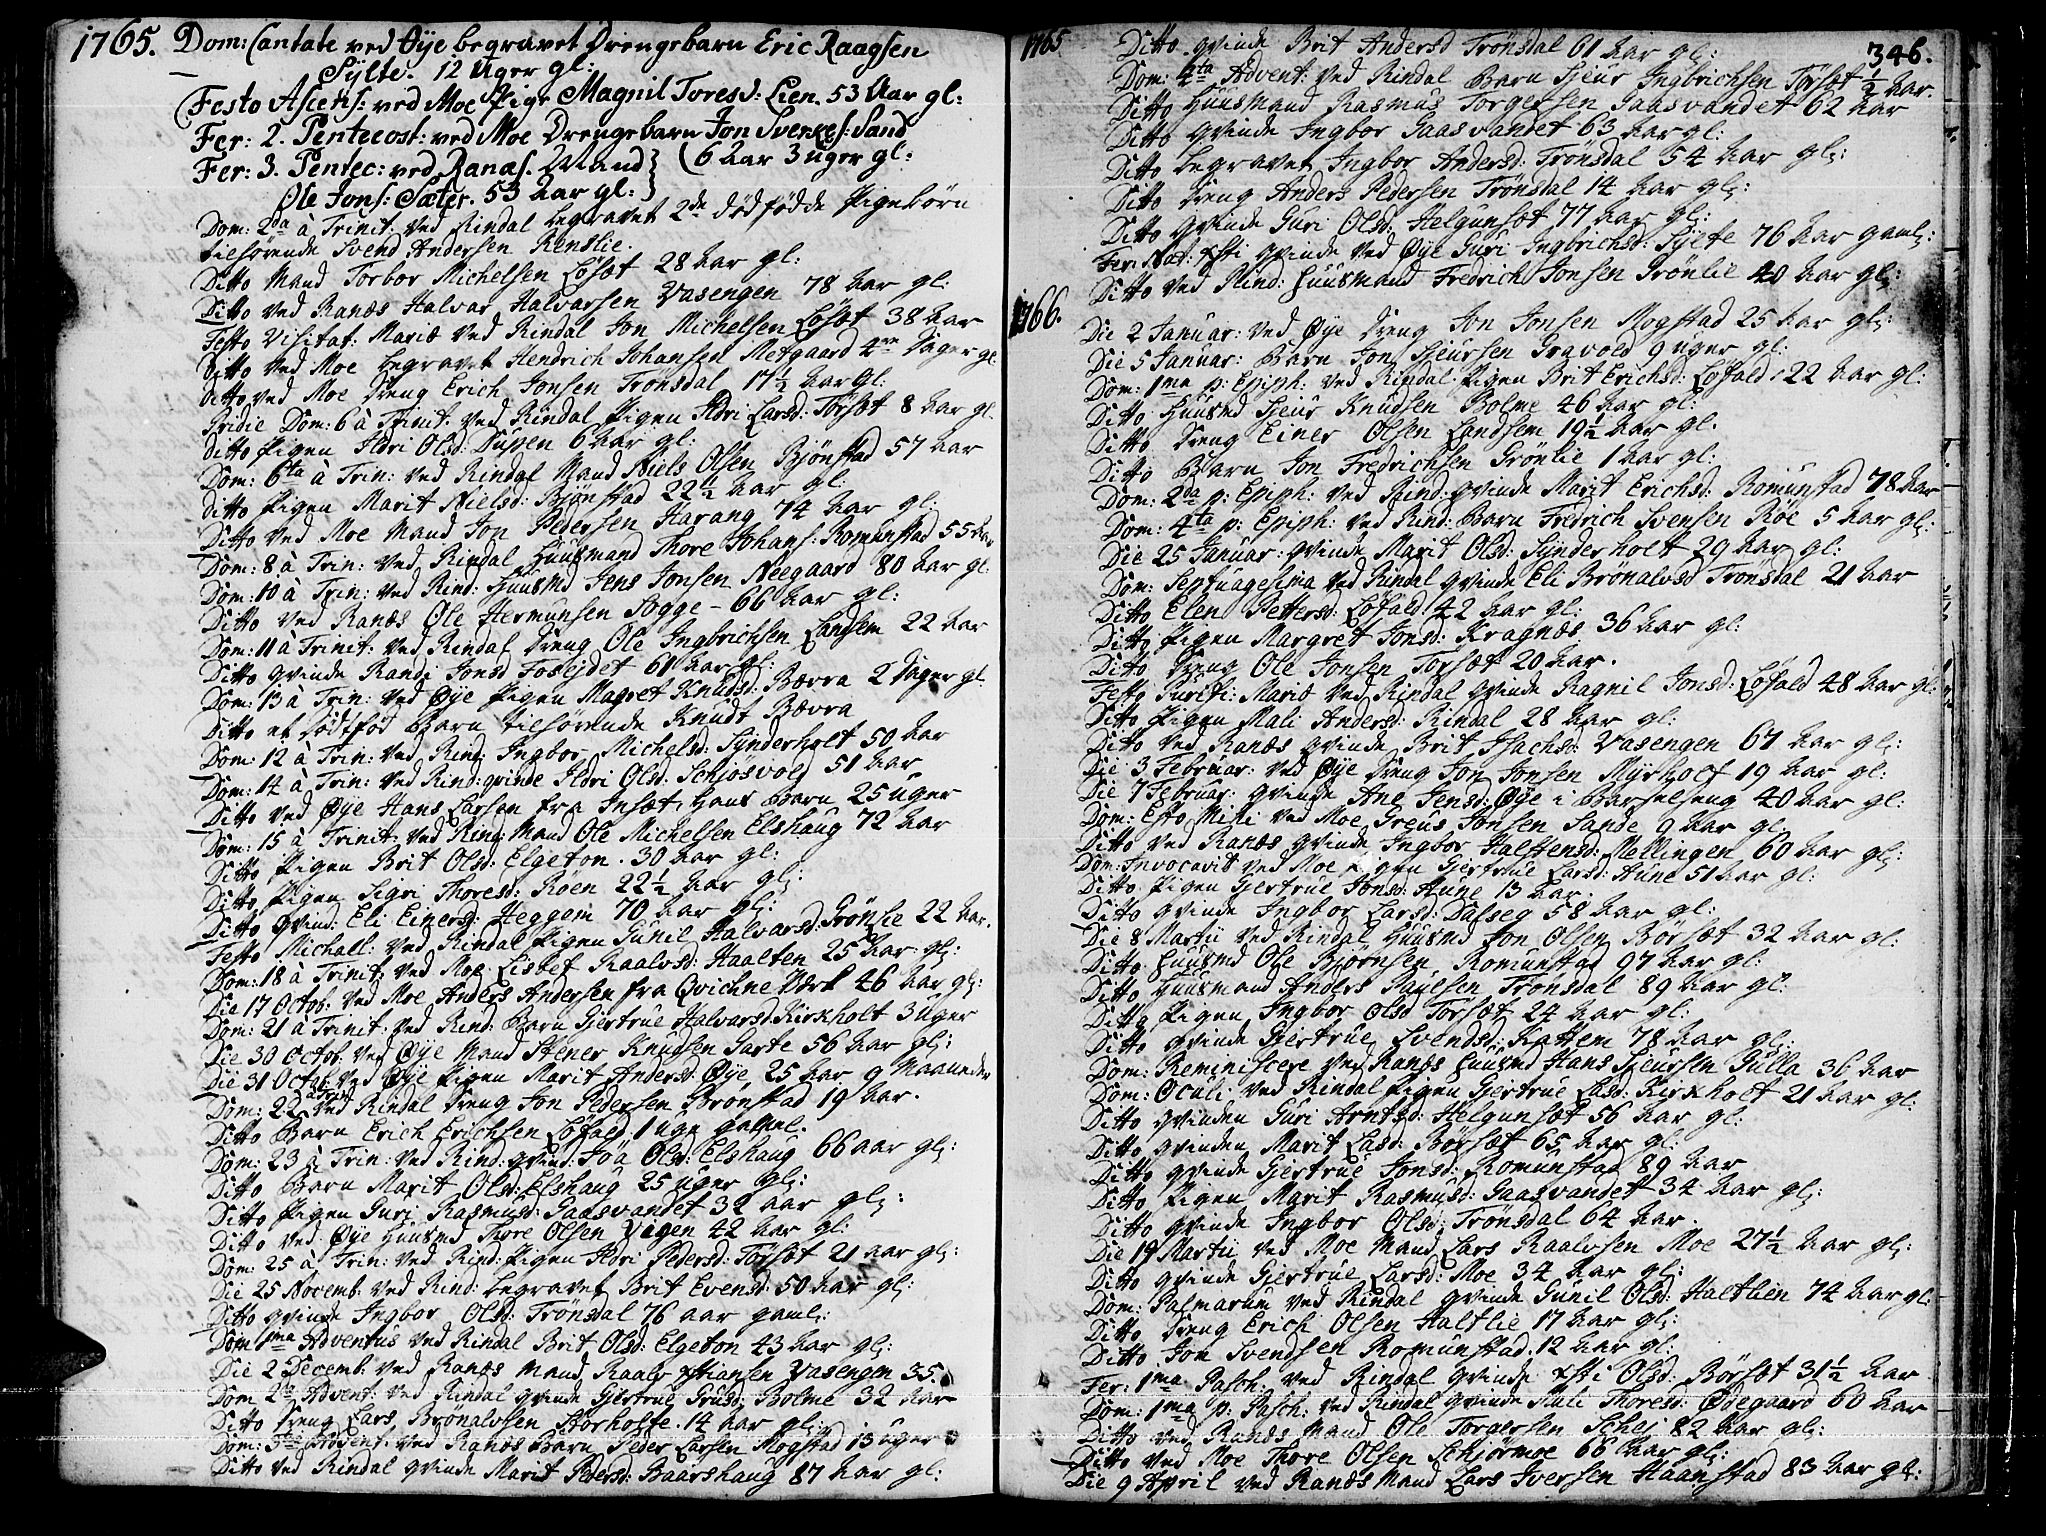 1765. Dom: Cantate ved Øye begravet Drengebarn Eric Raagsen
Sylte. 12 Uger gl:
Festo Ascens: ved Moe Pige Magnil Toresd: Lien. 53 Aar gl:
Fer: 2. Pentecost: ved Moe Drengebarn Jon Sverkes: Sand
Fer: 3. Pentec: ved Ranæs. Mand (6 Aar 3 uger gl:
Ole Jons: Sæter. 53 Aar gl:
Dom: 2da à Trinit: ved Rindal begravet 2de dødfødde Pigebørn
tilhørende Svend Andersen Renslie.
Ditto Mand Torbør Michelsen Løsæt 28 Aar gl:
Ditto ved Ranæs Halvar Halvarsen Vasengen 78 Aar gl:
Festo Visitat: Mariæ ved Rindal Jon Michelsen Løsæt 38 Aar
Ditto ved Moe begravet Hendrich Johansen Metgaard 4re Dager gl
Ditto ved Moe Dreng Erich Jonsen Trönsdal 17½ Aar gl:
Pridie Dom: 6 à Trinit: ved Rindal Pigen Ildri Larsd: Törsæt 8 Aar gl
Ditto Pigen Ildri Olsd: Dussen 6 Aar gl:
Dom: 6ta à Trin: ved Rindal Mand Niels Olsen Bjönstad 57 Aar
Ditto Pigen Marit Nielsd: Bjönstad 22½ Aar gl:
Ditto ved Moe Mand Jon Pedersen Harang 74 Aar gl:
Dom: 8 à Trin: ved Rindal Huusmand Thore Johans: Romunstad 55 Aar
Dom: 10 à Trin: ved Rind: Huusmd Jens Jonsen Neegaard 80 Aar gl:
Ditto ved Ranæs Ole Hermunsen Sogge - 66 Aar gl:
Dom: 11 à Trinit: ved Rindal Dreng Ole Ingbrichsen Landsem 22 Aar
Ditto Qvinde Randi Jonsd Fosejdet 61 Aar gl:
Dom: 13 à Trin: ved Øye Pigen Magret Knudsd: Bævra 2 Dager gl.
Ditto et dødfød Barn tilhørende Knudt Bævra
Dom: 12 à Trin: ved Rind: Ingbor Michelsd: Synderholt 50 Aar
Dom: 14 à Trin: ved Rind: qvinde Ildri Olsd: Schjösvold 51 Aar
Ditto ved Øye Hans Larsen fra Insæt, Hans Barn 25 uger
Dom: 15 à Trinit: ved Rind: Mand Ole Michelsen Elshaug 72 Aar
Ditto Pigen Brit Olsd: Elgeton. 30 Aar gl:
Ditto Pigen Sigri Thoresd: Röen 22½ Aar gl:
Ditto Qvind: Eli Einersd: Heggem 70 Aar gl:
Festo Michaël: ved Rindal Pigen Gunil Halvarsd: Grönlie 22 Aar.
Dom: 18 à Trinit: ved Moe: Lisbet Raalvsd: Haalten 25 Aar gl:
Die 17 Octob: ved Moe Anders Andersen fra Qvichne Værk 46 Aar gl:
Dom: 21 à Trinit: ved Rind: Barn Gjertrue Halvarsd: Kirkholt 3 Uger
Die 30 Octob: ved Øye Mand Stener Knudsen Sæte 56 Aar gl:
Die 31 Octob: ved Øye Pigen Marit Andersd: Øye 25 Aar 9 Maaneder
Dom: 22 à Trin: ved Rindal Dreng Jon Pedersen Brönstad 19 Aar.
Ditto Barn Erich Erichsen Löfald 1 uge gammel.
Dom: 23 à Trin: ved Rind: qvind: Joä Olsd: Elshaug 66 aar gl:
Ditto Barn Marit Olsd: Elshaug 25 uger gl:
Ditto Pigen Guri Rasmusd: Gaasvandet 32 aar gl:
Ditto ved Øye Huusmd Thore Olsen Vigen 42 Aar gl:
Dom: 25 à Trin: ved Rind: Pigen Ildri Pedersd: Torsæt 21 aar gl:
Die 25 Novemb: ved Rind: begravet Brit Evensd: 50 Aar gl:
Ditto qvinde Ingbor Olsd: Trönsdal 76 aar gaml:
Dom 1ma Adventus ved Rindal Brit Olsd: Elgeton 43 Aar gl:
Die 2 Decemb: ved Ranæs Mand Raalv Xstiansen Vasengen 35.
Dom 2da Advent: ved Rindal qvinde Gjertrue Gulsd: Bolme 32 Aar
Ditto Dreng Lars Brönalvsen Storholte. 14 Aar gl:
Dom: 3tia Advent: ved Ranæs Barn Peder Larsen Mogstad 13 uger
Ditto ved Rindal qvinde Marit Pedersd: Baarshaug 87 Aar gl:
1765 Ditto qvinde Brit Andersd Trönsdal 61 Aar gl: 346.
Dom: 4ta Advent: ved Rindal Barn Sjeur Ingbrichsen Torsæt ½ Aar.
Ditto Huusmand Rasmus Torgersen Gaasvandet 62 Aar
Ditto qvinde Ingbor Gaasvandet 63 Aar gl:
Ditto begravet Ingbor Andersd: Trönsdal 54 Aar gl:
Ditto Dreng Anders Pedersen Trönsdal 14 Aar gl:
Ditto qvinde Guri Olsd: Helgunsæt 77 Aar gl:
Fer: Nat: Xsti qvinde ved Øye Guri Ingbrichsd: Sylte 76 Aar gaml:
Ditto ved Rind: Huusmand Fredrich Jonsen Grönlie 40 Aar gl:
1766.
Die 2 Januar: ved Øye Dreng Jon Jonsen Mogstad 25 Aar gl:
Die 5 Januar: Barn Jon Sjeursen Gravold 9 uger gl:
Dom: 1ma p: Epiph: ved Rindal Pigen Brit Erichsd: Löfald: 22 Aar gl:
Ditto Huusmd Sjeur Knudsen Bolme 46 Aar gl:
Ditto Dreng Einer Olsen Landsem 19½ Aar gl.
Ditto Barn Jon Fredrichsen Grönlie 1 Aar gl:
Dom: 2da p: Epiph: ved Rind: qvinde Marit Erichsd: Romunstad 78 Aar
Dom: 4ta p: Epiph: ved Rind: Barn Fredrich Svensen Röe 5 Aar gl:
Die 25 Januar: qvinde Marit Olsd: Synderholt 29 Aar gl:
Dom: Septuagesima ved Rindal qvinde Eli Brönalvsd Trönsdal 21 Aar
Ditto Elen Pettersd: Löfald 42 Aar gl:
Ditto Pigen Margret Jonsd: Kragnæs 36 Aar gl:
Ditto Dreng Ole Jonsen Torsæt 20 Aar.
Festo Purifi: Mariæ ved Rindal qvinde Ragnil Jonsd: Löfald 48 Aar gl:
Ditto Pigen Mali Andersd: Rindal 28 Aar gl:
Ditto ved Ranæs qvinde Brit Isachsd: Vasengen 67 Aar gl:
Die 3 Februar: ved Øye Dreng Jon Jonsen Myrholt 19 Aar gl:
Die 7 Februar: qvinde Ane Jensd: Øye i Barselseng 40 Aar gl:
Dom: Esto Mihi ved Moe Greus Jonsen Sande 9 Aar gl
Ditto ved Ranæs qvinde Ingbor Halstensd: Mellingen 60 Aar gl:
Dom: Invocavit ved Moe Pigen Gjertrue Larsd: Aune 51 Aar gl:
Ditto Pigen Gjertrue Jonsd: Aune 13 Aar.
Ditto qvinde Ingbor Larsd: Dalseg 58 Aar gl:
Die 8 Martii ved Rindal Huusmd Jon Olsen Börsæt 32 Aar gl:
Ditto Huusmd Ole Bjørnsen Romunstad 97 Aar gl:
Ditto Huusmand Anders Paulsen Trönsdal 89 Aar gl:
Ditto Pigen Ingbor Olsd Torsæt 24 Aar gl:
Ditto qvinde Gjertrue Svendsd: Kattem 78 Aar gl:
Dom: Reminiscere ved Ranæs Huusmd Hans Sjeursen Gulla 36 Aar
Dom: Oculi ved Rindal Pigen Gjertrue Lasd: Kirkholt 21 Aar gl:
Ditto qvinden Guri Arntsd: Helgunsæt 56 Aar gl:
Ditto qvinden Marit Lasd: Börsæt 65 Aar gl:
Ditto qvinde Gjertrue Jonsd: Romunstad 89 Aar
Ditto Pigen Marit Rasmusd: Gaasvandet 34 Aar gl:
Ditto qvinde Ingbor Olsd: Trönsdal 64 Aar.
Die 19 Martii ved Moe Mand Lars Raalvsen Moe 27½ Aar gl:
Ditto qvinde Gjertrue Larsd: Moe 34 Aar gl:
Dom: Palmarum ved Rindal qvinde Gunil Olsd: Haltlien 74 Aar gl:
Ditto Dreng Erich Olsen Haltlie 17 Aar gl:
Ditto Jon Svendsen Romunstad. 12 Aar gl:
Fer: 1ma Pasch: ved Rindal qvinde Xsti Olsd: Börsæt 31½ Aar
Dom: 1ma p: Pasch: ved Rindal qvinde Mali Thoresd: Ødegaard 60 Aar
Ditto ved Ranæs Mand Ole Torgersen Schei 82 Aar gl:
Ditto ved Moe Thore Olsen Schjörmoe 66 Aar gl:
Die 9 April ved Ranæs Mand Lars Iversen Haanstad 83 Aar gl: